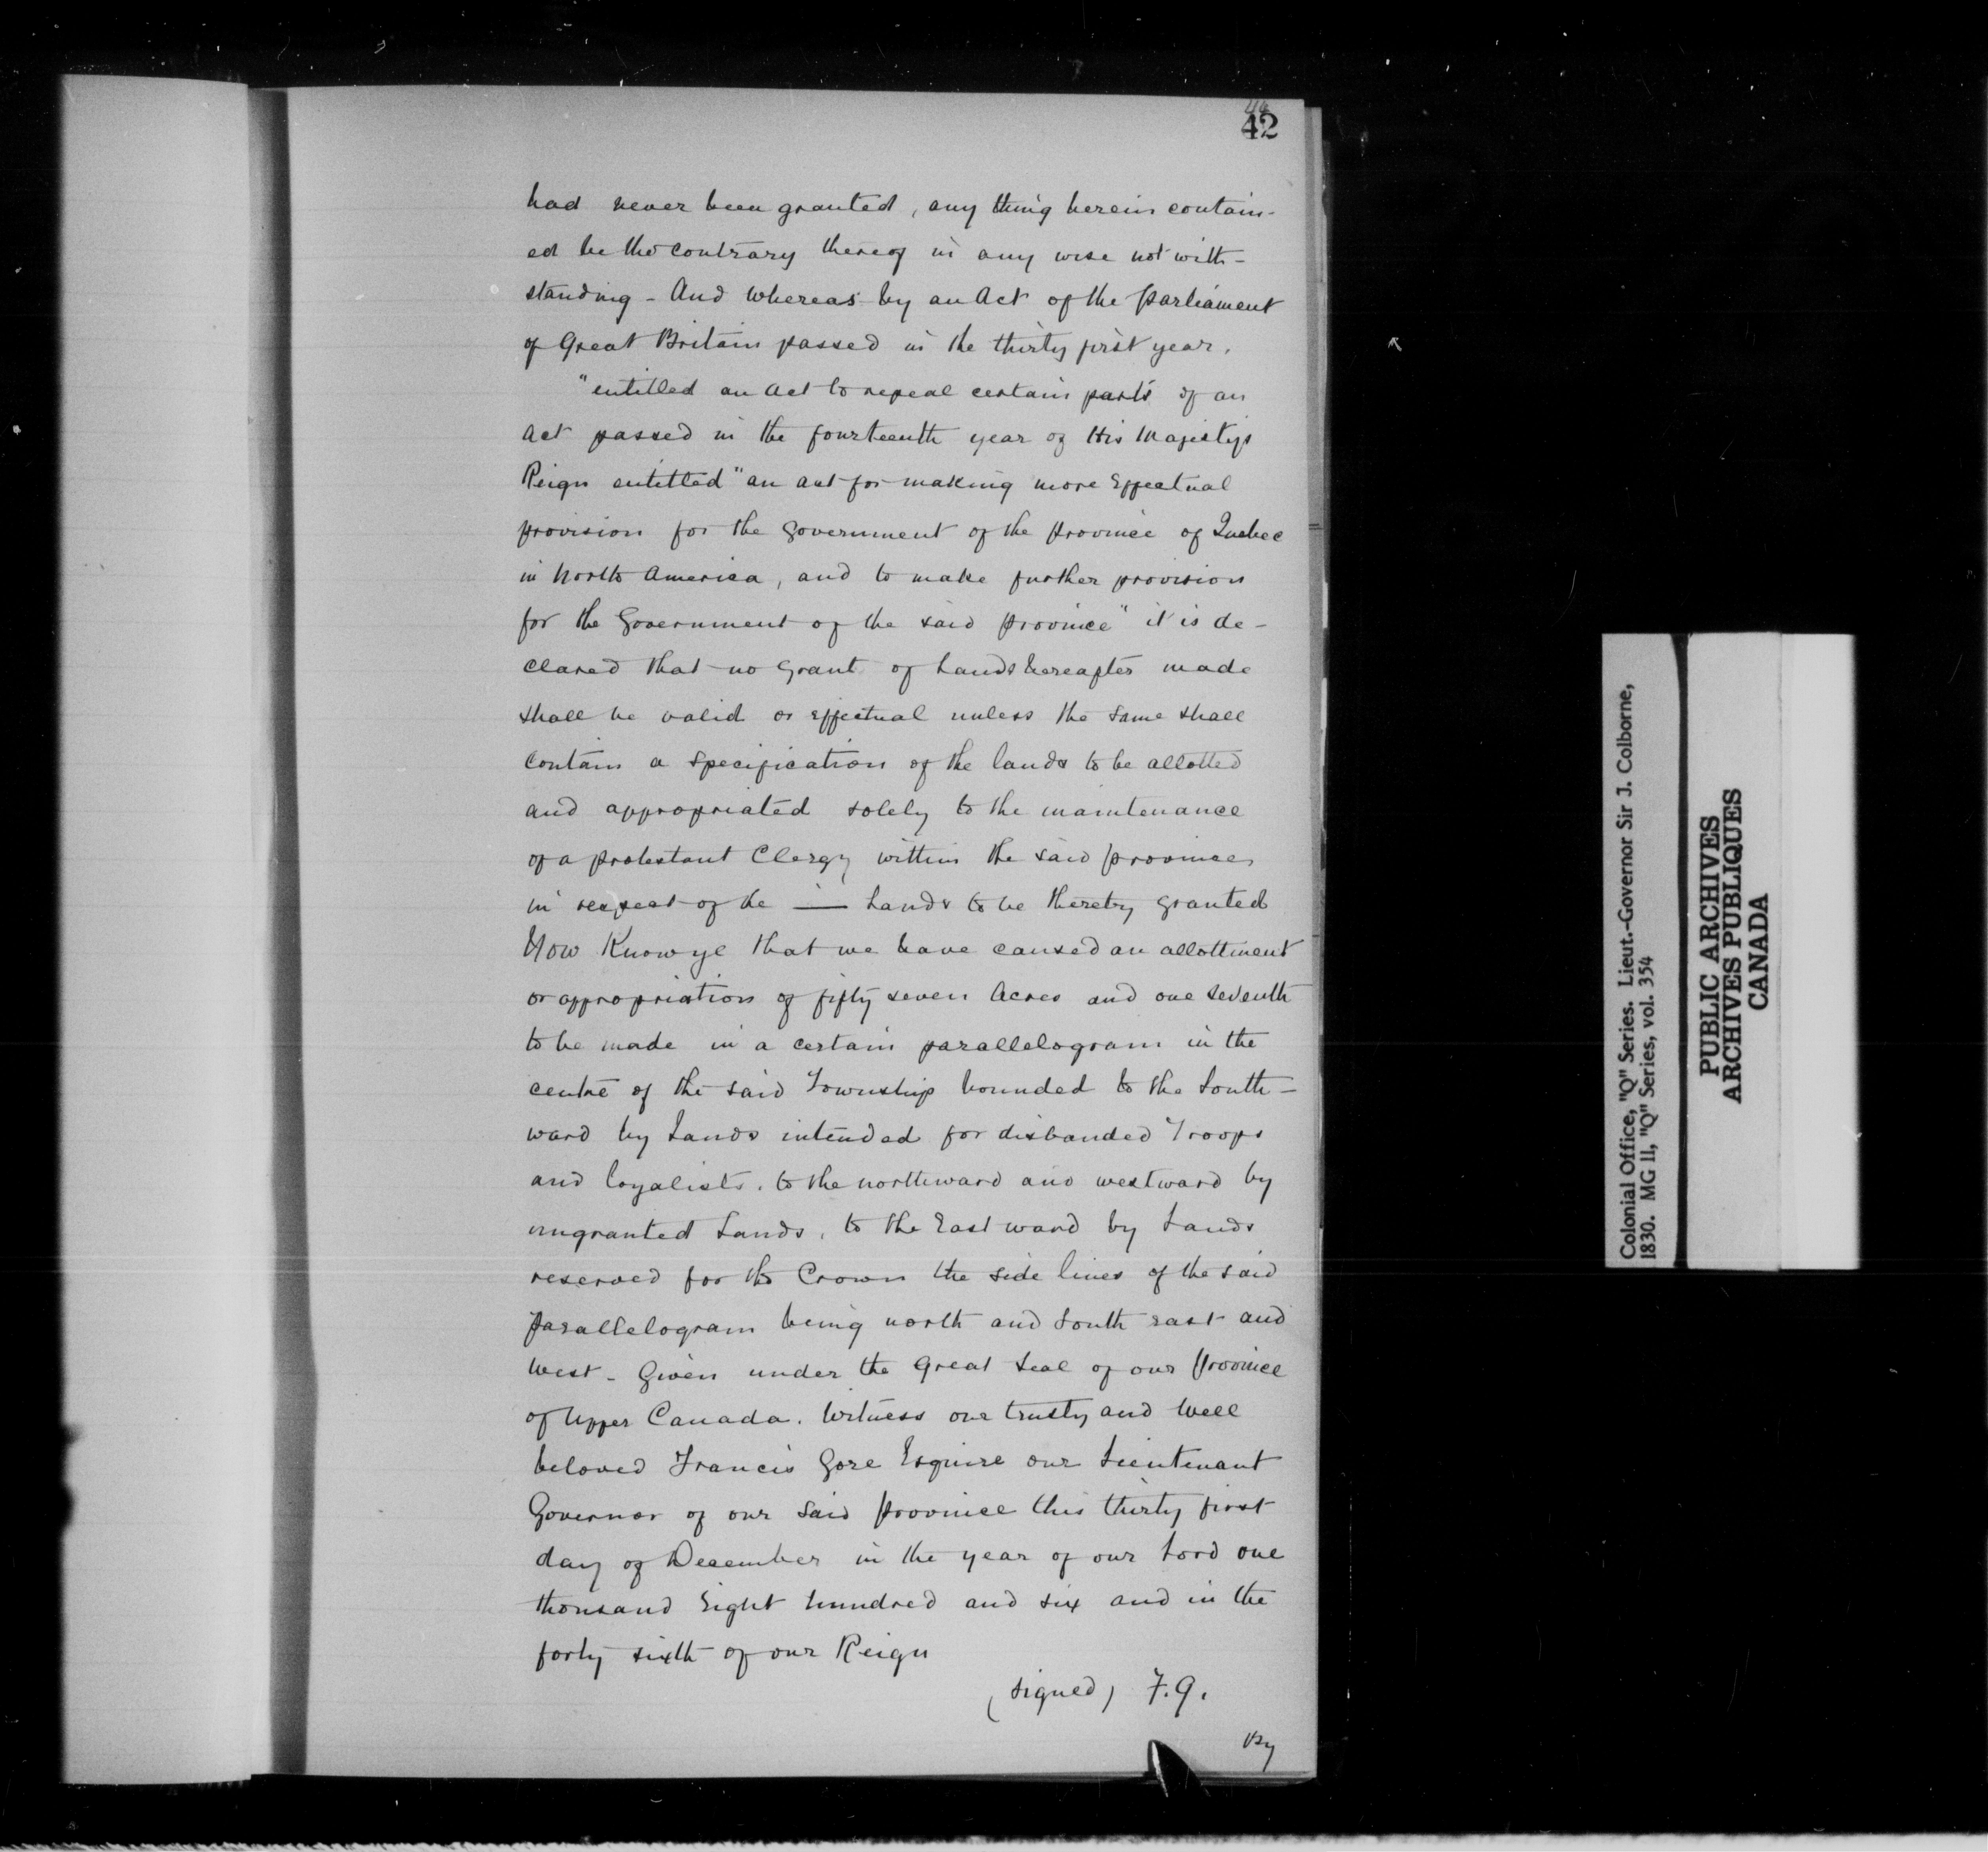 42
had never been granted, any thing herein contain-
ed be the contrary thereof in any wise not with-
standing - And whereas by an Act of the parliament
of Great Britain passed in the thirty first year,
"entitled an Act to repeal certain parts of an
Act passed in the fourteenth year of His Majestys
Reign entitled "an act for making more Effectual
provision for the Government of the province of Quebec
in North America, and to make further provision
for the Government of the said province" it is de-
clared that no Grant of Lands hereafter made
shall be valid or effectual unless the same shall
contain a specification of the lands to be allotted
and appropriated solely to the maintenance
of a protestant Clergy within the said province
in respect of the — Lands to be thereby granted
Now Know ye that we have caused an allottment
or appropriation of fifty seven Acres and one seventh
to be made in a certain parallelogram in the
centre of the said Township bounded to the South-
ward by Lands intended for disbanded Troops
and loyalists, to the northward and westward by
ungranted Lands, to the Eastward by Lands
reserved for the Crown the side lines of the said
parallelogram being north and South East and
West - Given under the Great Seal of our province
of Upper Canada. Witness our trusty and well
beloved Francis Gore Esquire our Lieutenant
Governor of our said province this thirty first
day of December in the year of our Lord one
thousand Eight hundred and six and in the
forty sixth of our Reign
(signed) F.G.
By
Colonial Office, "Q" Series. Lieut.-Governor Sir J. Colborne,
1830. MG 11, "Q" Series, vol. 354
PUBLIC ARCHIVES
ARCHIVES PUBLIQUES
CANADA